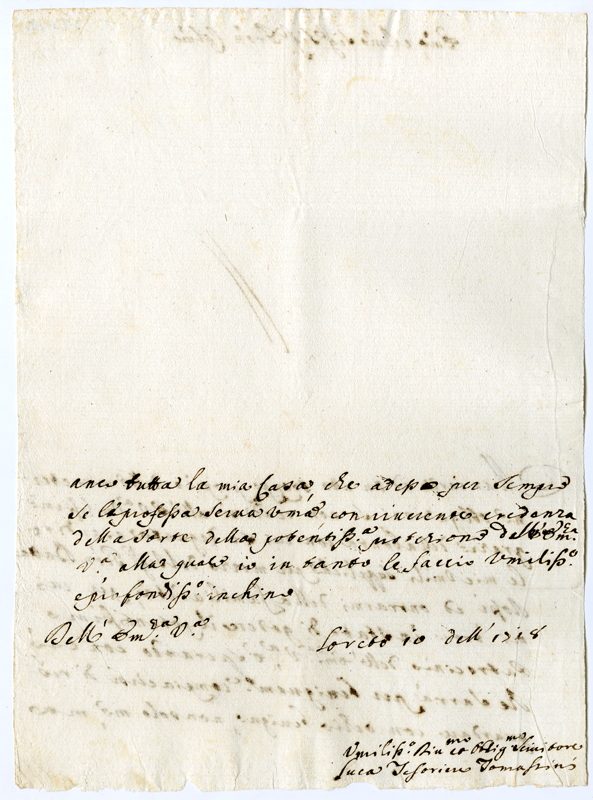 anco tutta la mia Casa che adesso per sempre
se le professa serva Um.a con riverente credenza
della sorte della potentiss.a protezione dell'Em.za
V.a alla quale io in tanto le faccio Umiliss.o
e profondiss.o inchino
Dell' Em.za V.a Loreto 10 dell' 1718
Umiliss.o Div.mo et Oblig.mo Servitore
Luca Tesoriere Tomassini